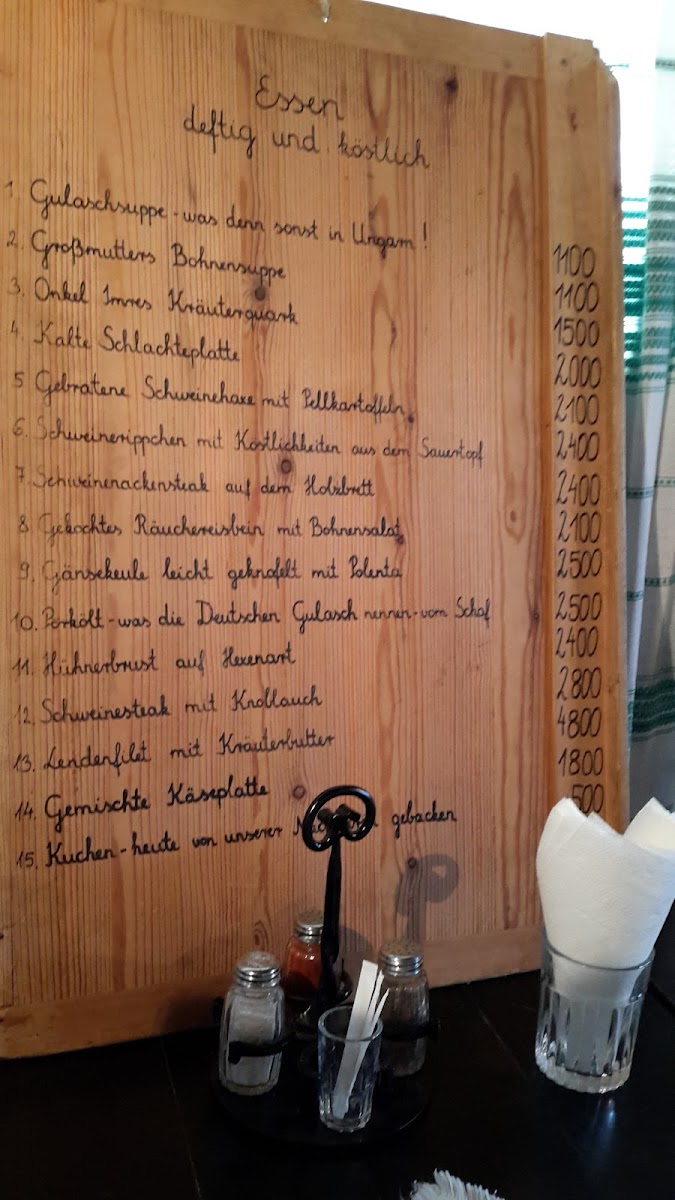 Essen
deftig und köstlich
1. Gulaschsuppe - was denn sonst in Ungarn! 1100
2. Großmutters Bohnensuppe 1100
3. Onkel Imres Kräuterquark 1500
4. Kalte Schlachteplatte 2000
5. Gebratene Schweinehaxe mit Pellkartoffeln 2100
6. Schweinerippchen mit Köstlichkeiten aus dem Sauertopf 2400
7. Schweinenackensteak auf dem Holzbrett 2400
8. Gekochtes Räuchereisbein mit Bohnensalat 2100
9. Gänsekeule leicht geknofelt mit Polenta 2500
10. Pörkölt - was die Deutschen Gulasch nennen - vom Schaf 2500
11. Hühnerbrust auf Hexenart 2400
12. Schweinesteak mit Knoblauch 2800
13. Lendenfilet mit Kräuterbutter 4800
14. Gemischte Käseplatte 1800
15. Kuchen - heute von unserer gebacken 500